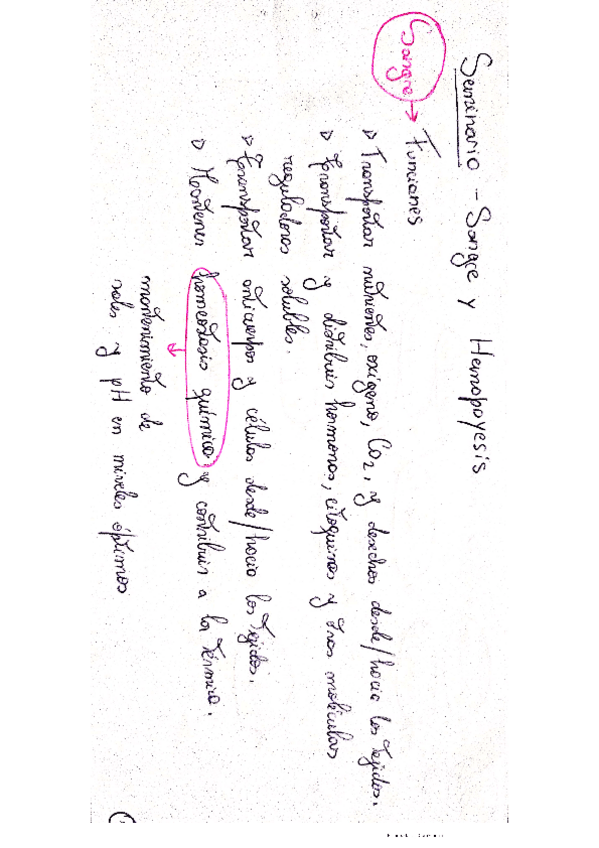 Seminario - Sangre y Hemopoyesis
Sangre → Funciones
▷ Transportar nutrientes, oxígeno, CO2, y desechos desde/hacia los tejidos.
▷ Transportar y distribuir hormonas, citoquinas y otras moléculas
reguladoras solubles.
▷ Transportar anticuerpos y células desde/hacia los tejidos.
▷ Mantener homeostasis química y contribuir a la térmica.
mantenimiento de
sales y pH en niveles óptimos